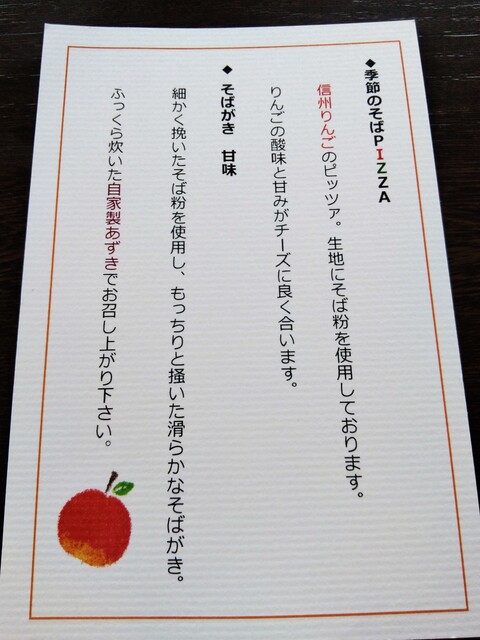 ◆季節のそばPIZZA
信州りんごのピッツァ。生地にそば粉を使用しております。
りんごの酸味と甘みがチーズに良く合います。
◆そばがき　甘味
細かく挽いたそば粉を使用し、もっちりと掻いた滑らかなそばがき。
ふっくら炊いた自家製あずきでお召し上がり下さい。